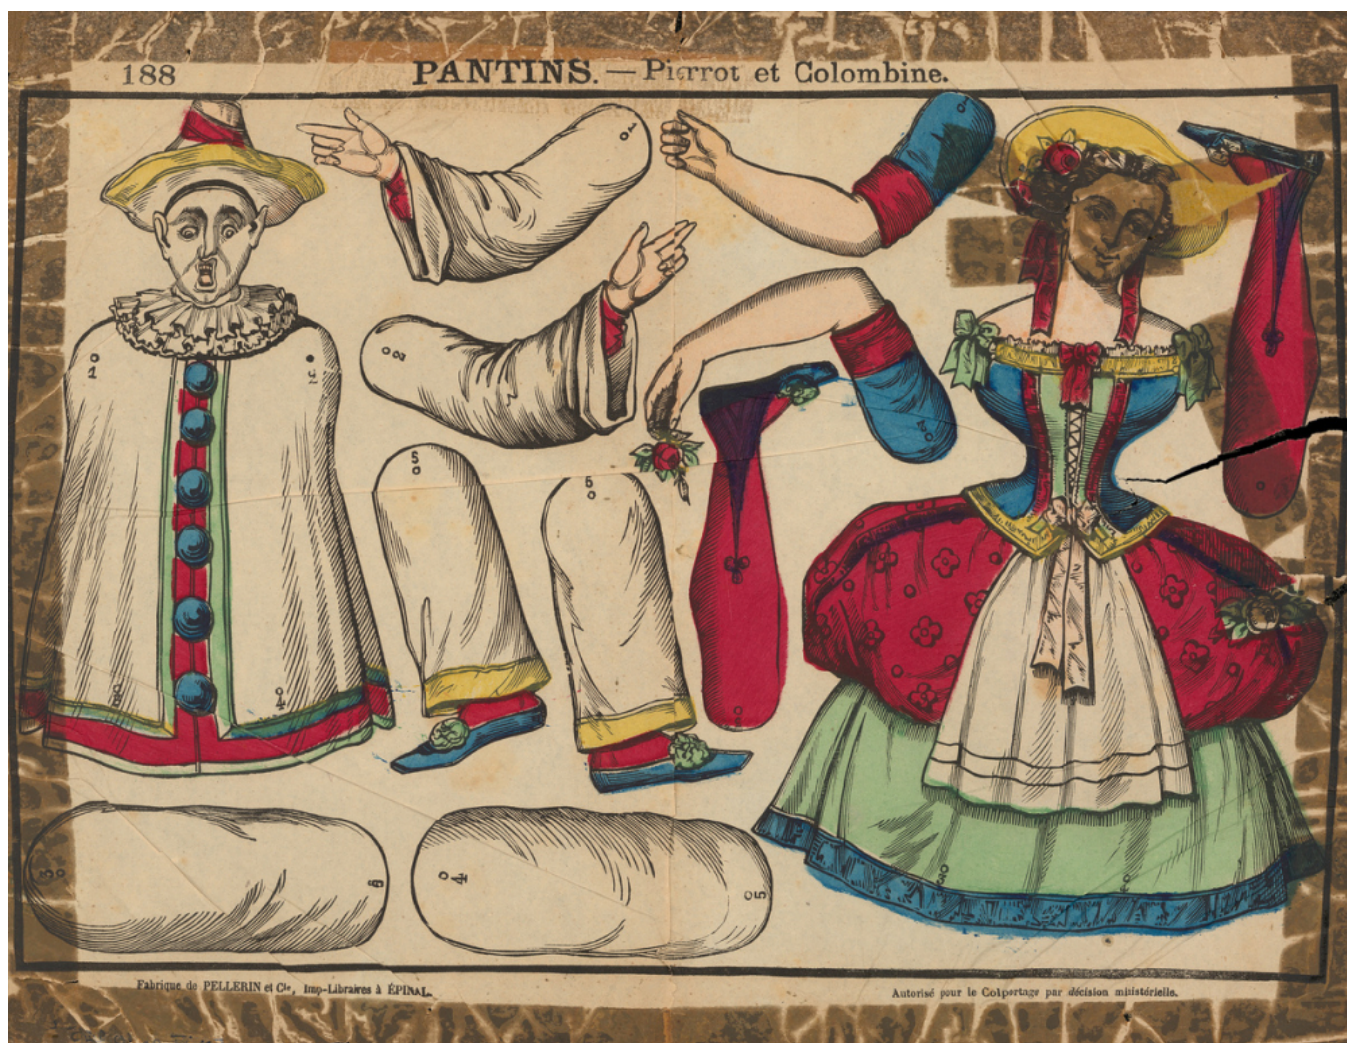 188
PANTINS. — Pierrot et Colombine.
1
2
1
2
1
2
5
6
3
4
3
6
4
5
Fabrique de PELLERIN et Cie, Imp-Libraires à ÉPINAL.
Autorisé pour le Colportage par décision ministérielle.